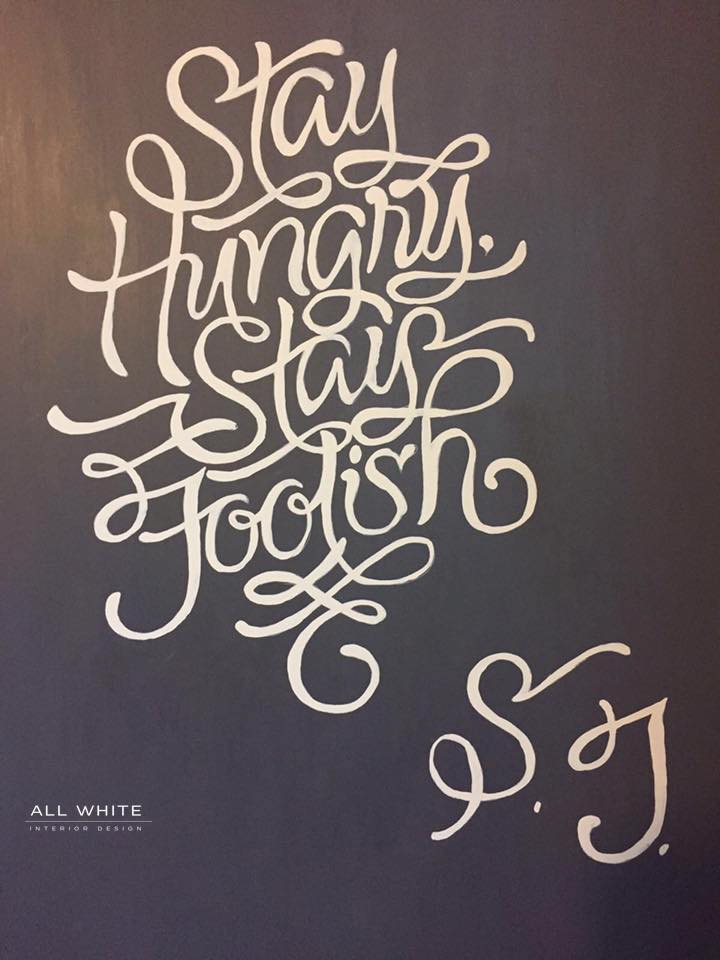 Stay
Hungry.
Stay
Foolish
S. J.
ALL WHITE
INTERIOR DESIGN